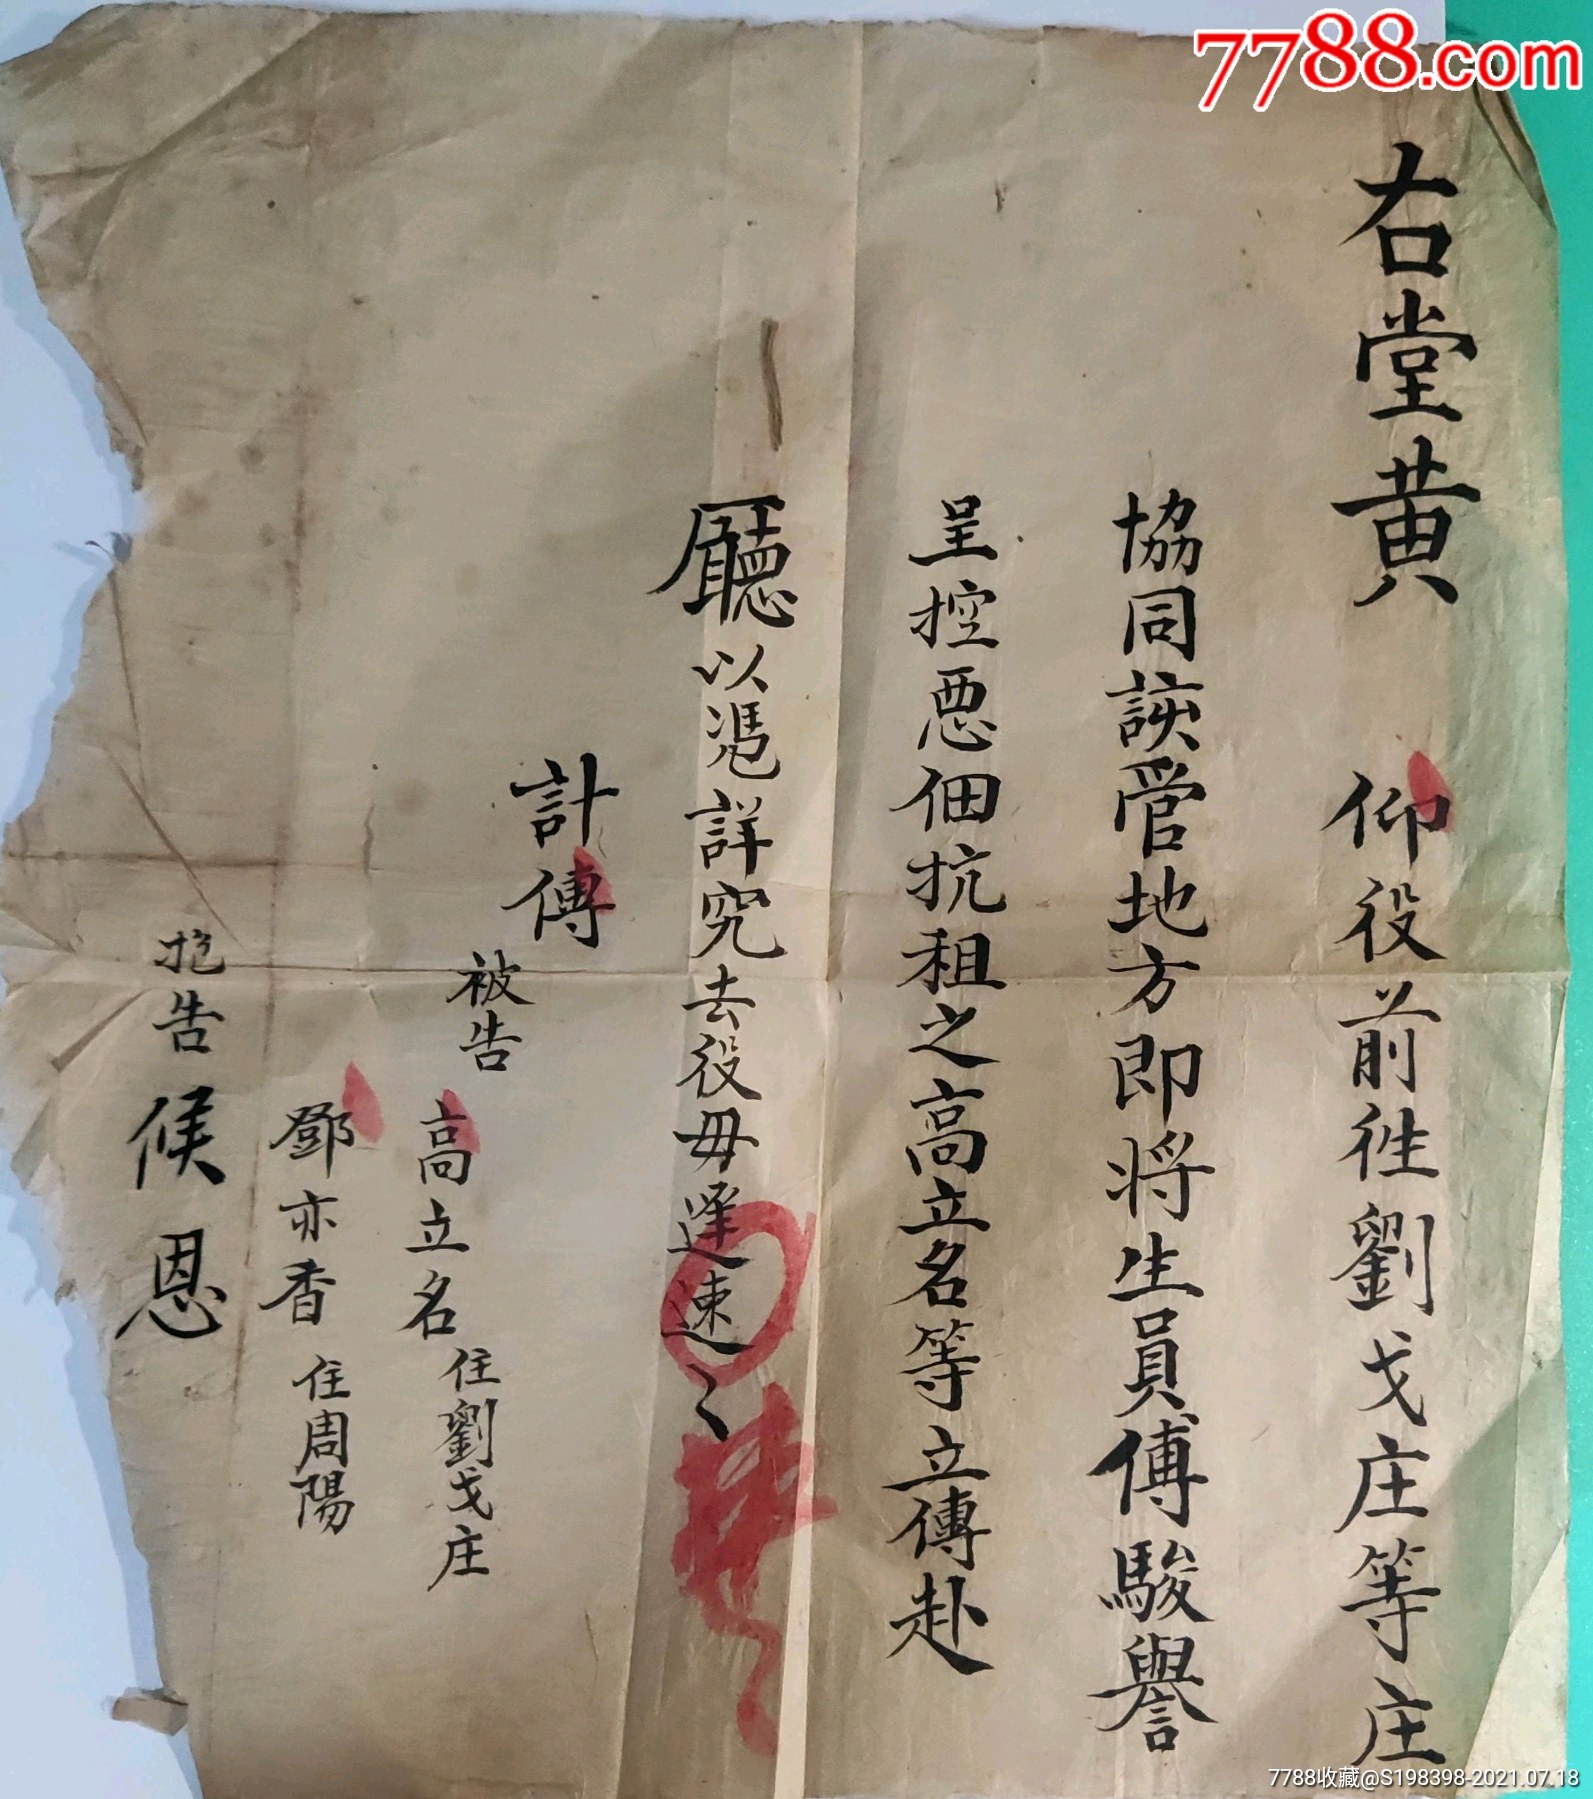 7788.com
右堂黄 仰役前徃劉戈庄等庄
協同該管地方即将生員傅駿譽
呈控悪佃抗租之高立名等立傳赴
廳以凴詳究去役毋遲速〻
計傳
被告
高立名 住劉戈庄
鄧亦香 住周陽
抱告 候恩
7788收藏@S198398-2021.07.18